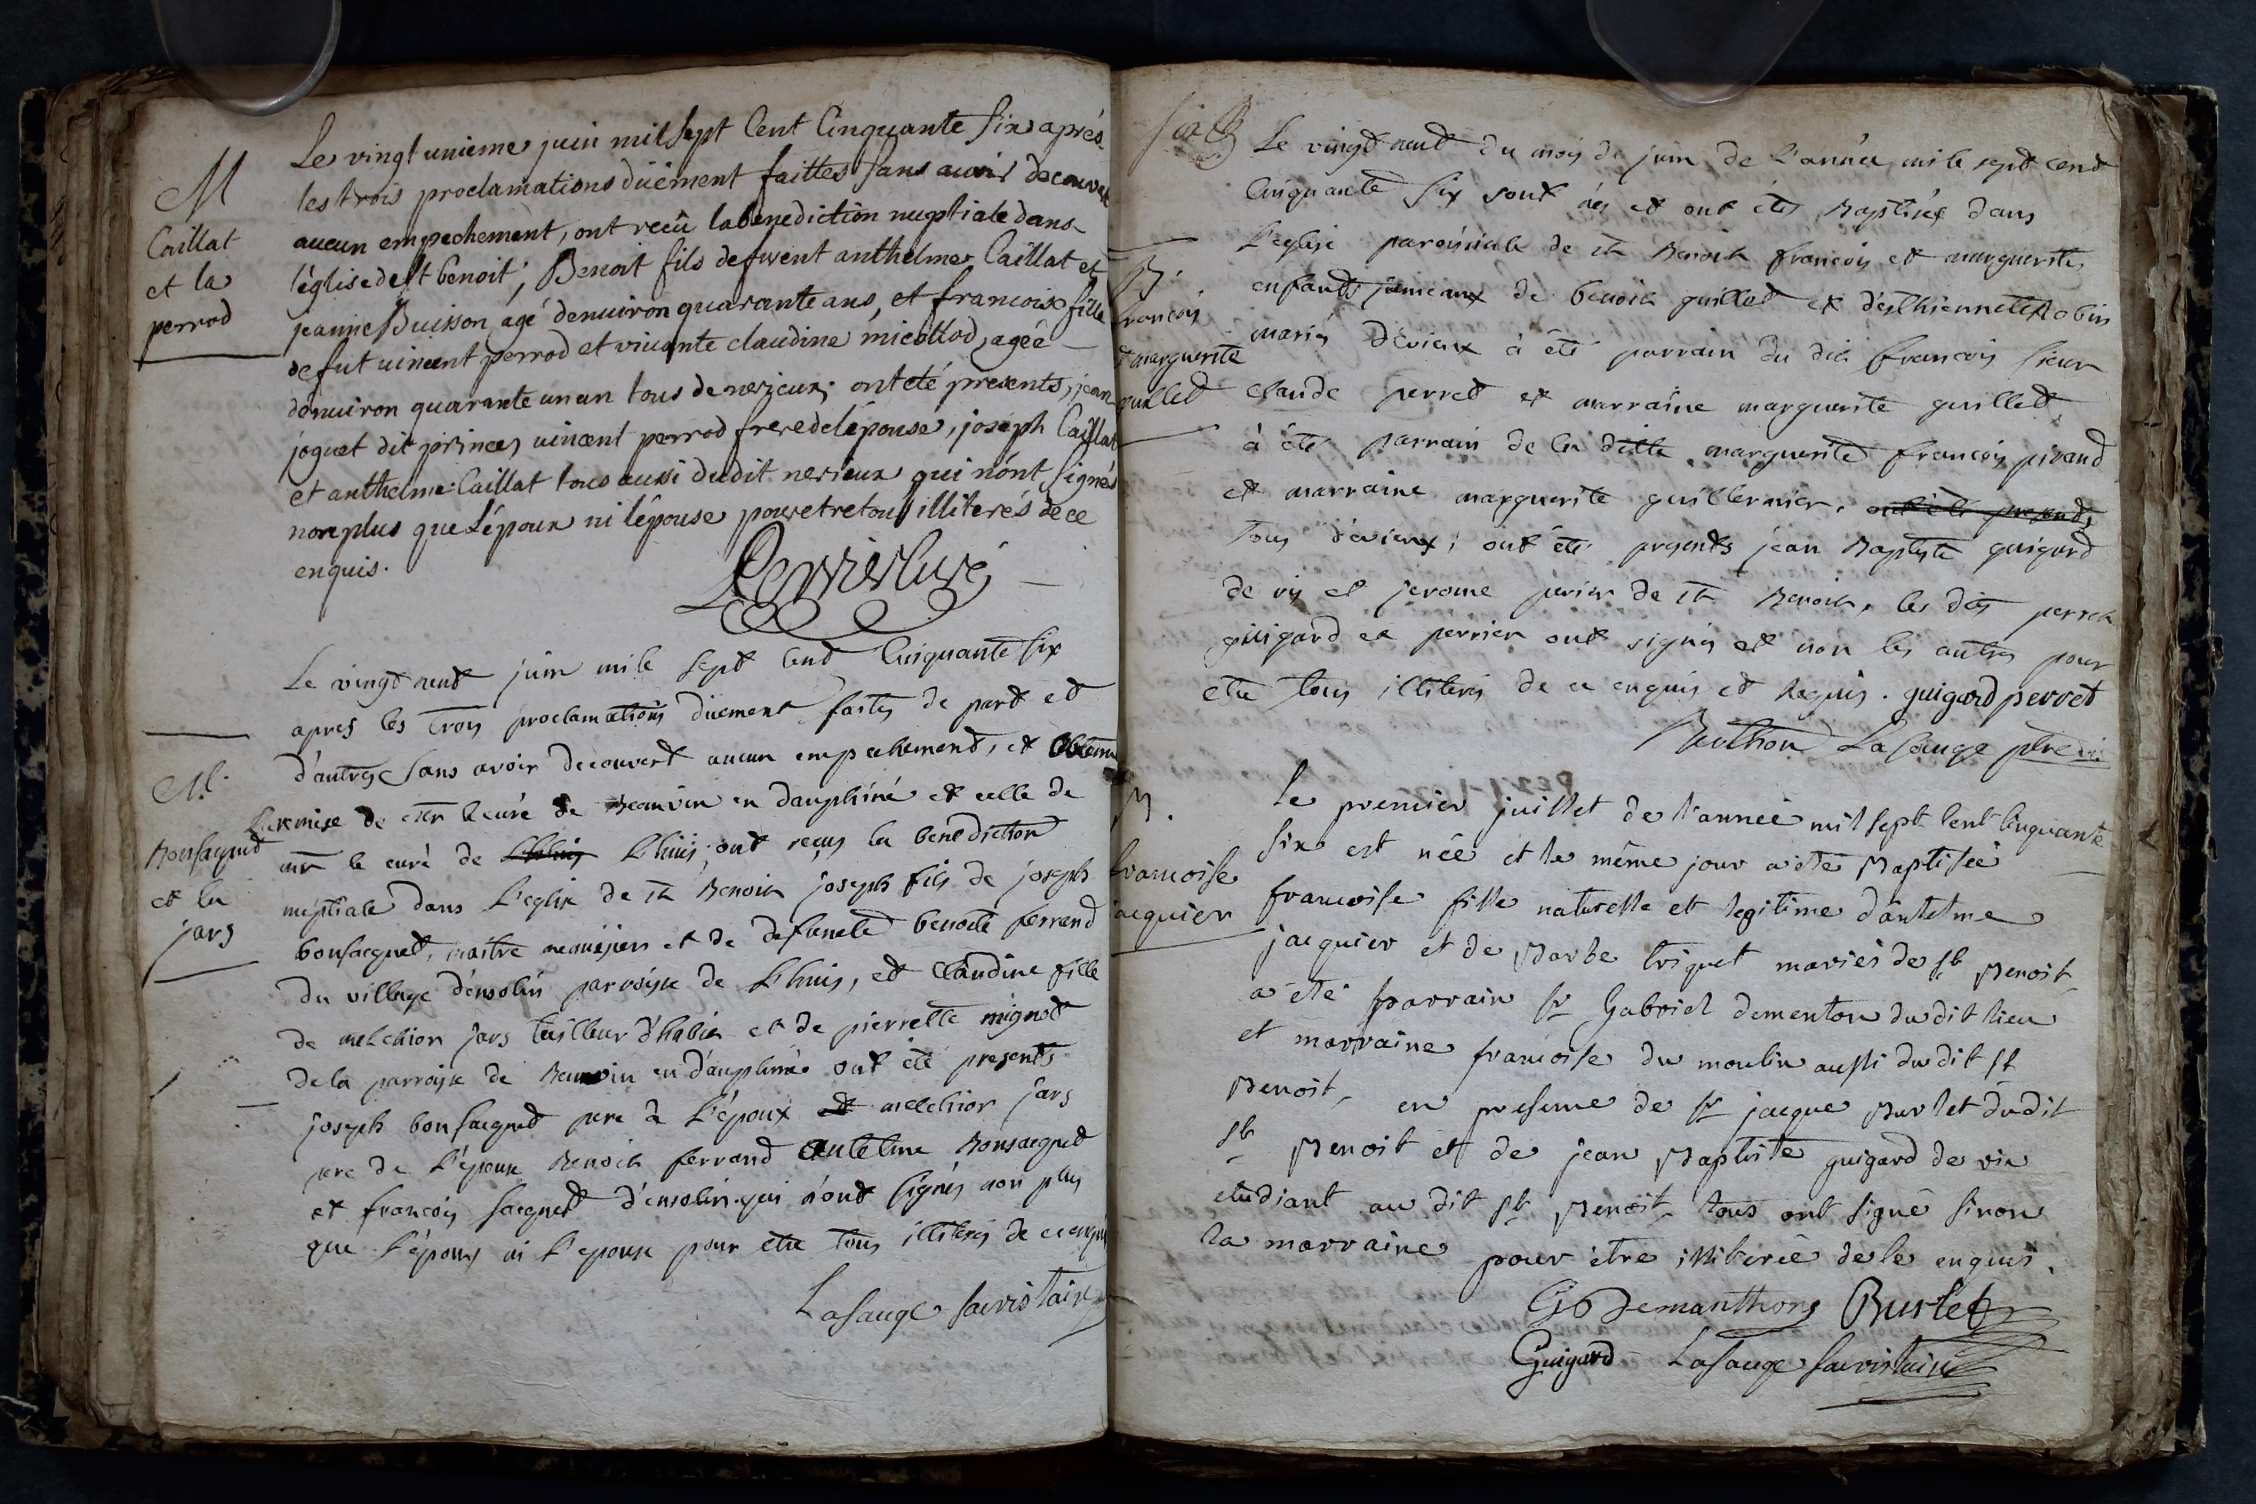 M
Caillat
et la
perrod
Le vingt unieme juin mil sept Cent Cinquante six aprés
les trois proclamations düement faittes sans avoir decouvert
aucun empechement, ont reçû la benediction nuptiale dans
l'église de st benoit, Benoit fils de fuent anthelme Caillat et
jeanne Buisson agé denuiron quarante ans, et francoise fille
de fut uincent perrod et viuante claudine micollod, agéé
denuiron quarante un an tous de nerieux; ont eté presents, jean
joguet dit prince, uincent perrod frere de lépouse, joseph Caillat
et anthelme Caillat tous aussi dudit nerieux qui n'ont signés
non plus que L'époux ni lépouse pour etre tous illiterés de ce
enquis.
Perrier Curé
M.
Bonsacqued
et la
jars
Le vingt neuf juin mile sept Cend Cinquante six
apres les trois proclamations düement faites de part et
d'autres sans avoir decouvert aucun empechement, et Obtenu
la remise de mr le curé de Beauvin en dauphiné et celle de
mr le curé de Lhuis Lhuis; ont reçus la bénédiction
nuptiale dans L'eglise de st Benoit joseph fils de joseph
bonsacqued, maitre et de defuncte benoite ferrand
du village d'ensolin paroisse de Lhuis, et Claudine fille
de melchior jars tailleur d'habits et de pierrette mignot
de la parroisse de Beauvin en dauphiné ont été presents
joseph bonsacqued pere de L'époux et melchior jars
pere de L'épouse Benoit ferrand Antelme Bonsacqued
et francois sacqued d'ensolin qui n'ont signés non plus
que L'époux ni L'epouse pour etre tous illiterés de ce enquis
Lasauge sacristain
B.
francois
et marguerite
guilled
Le vingt neuf du mois de juin de l'année mile sept cend
Cinquante six sont nés et ont étés Baptisés dans
L'eglise paroissiale de st Benoit francois et marguerite
enfants jumeaux de benoit guilled et d'esthiennette Robin
mariés d'évieux à été parrain du dit francois sieur
Claude perred et marraine marguerite guilled
à été parrain de la ditte marguerite francois pivand
et marraine marguerite guillermier, ont été presents
Tous d'évieux, ont été presents jean Baptiste guigard
de vis et jerome perier de st Benoit, les dits perret
guigard et perrier ont signés et non les autres pour
etre tous illiterés de ce enquis et requis. guigard perret
Lasauge ptre
B.
francoise
jacquier
Le premier juillet de l'année mil sept Cent Cinquante
six est née et le même jour a été Baptisée
francoise fille naturelle et legitime d'antelme
jacquier et de Barbe triquet mariés de st Benoit
a été parrain sr Gabriel dementon du dit lieu
et marraine francoise du moulin aussi du dit st
Benoit, en presence de sr jacque Burlet dudit
st Benoit et de jean Baptiste guigard de vie
etudiant au dit st Benoit tous ont signé sinon
la marraine pour être illiterée de ce enquis.
Gb Demanthons Burlet
Guigard Lasauge sacristain